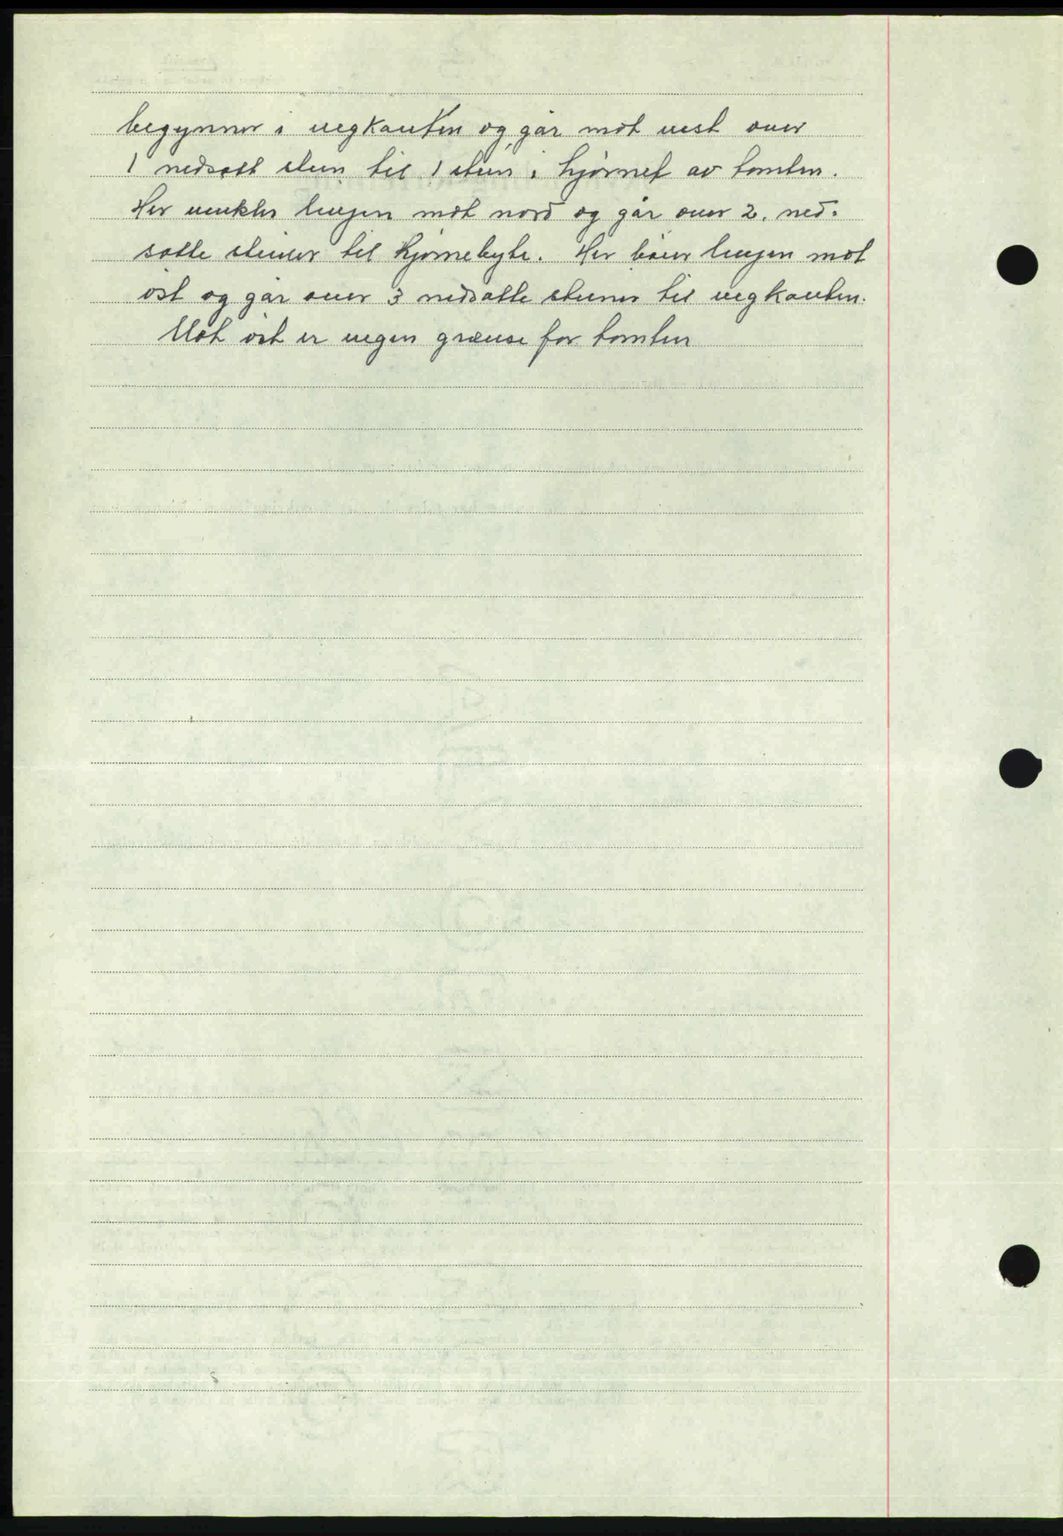 begynner i vegkanten og går mot vest over
1 nedsatt sten til 1 sten i hjørnet av tomten.
Her vinkler linjen mot nord og går over 2. ned-
satte stener til hjørnebyte. Her bøier linjen mot
øst og går over 3 nedsatte stener til vegkanten.
Mot øst er vegen grænse for tomten